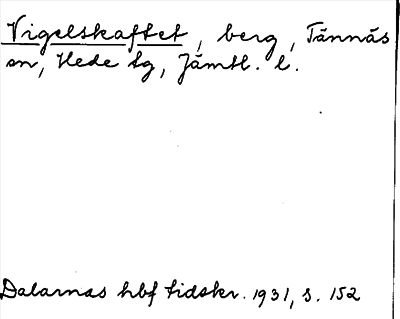 Vigelskaftet, berg, Tännäs
sn, Hede tg, Jämtl. l.
Dalarnas hbf tidskr. 1931, s. 152